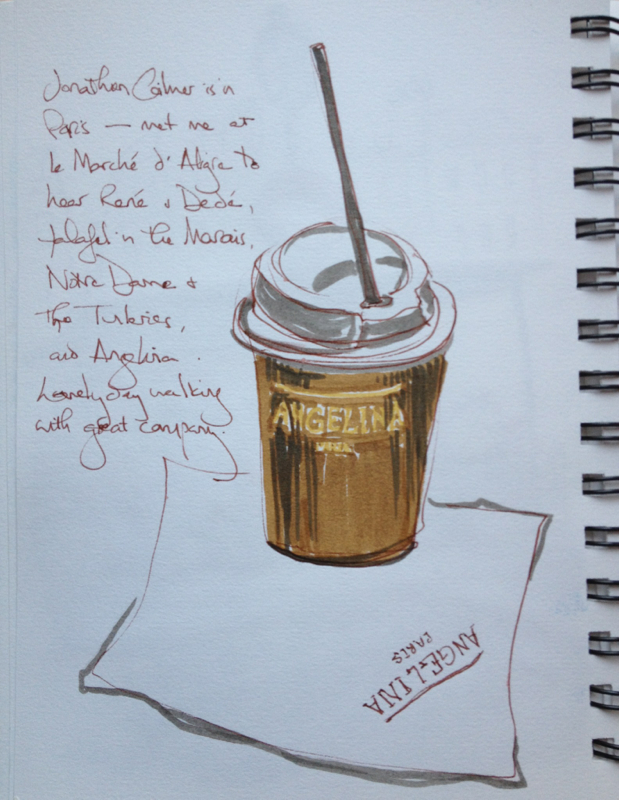 Jonathan Gilmer is in
Paris — met me at
le Marché d'Aligre to
hear René & Dédé,
falafel in the Marais,
Notre Dame &
the Tuileries,
and Angelina.
Lovely day walking
with great company.
ANGELINA
PARIS
ANGELINA
PARIS